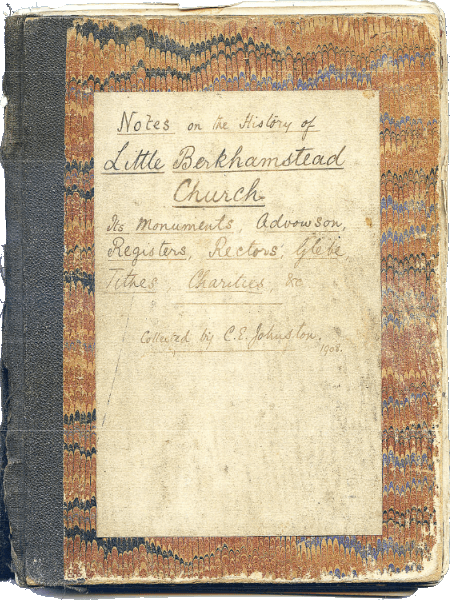 Notes on the History of
Little Berkhamstead
Church.
Its Monuments, Advowson,
Registers, Rectors, Glebe
Tithes, Charities, &c
Collected by C.E. Johnston.
1908.